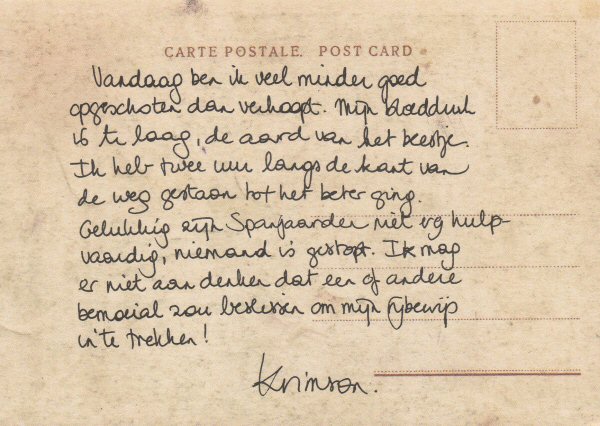 CARTE POSTALE. POST CARD
Vandaag ben ik veel minder goed
opgeschoten dan verhoopt. Mijn bloeddruk
is te laag, de aard van het beestje.
Ik heb twee uur langs de kant van
de weg gestaan tot het beter ging.
Gelukkig zijn Spanjaarden niet erg hulp-
vaardig, niemand is gestopt. Ik mag
er niet aan denken dat een of andere
bemoeial zou beslissen om mijn rijbewijs
in te trekken!
Krimson.